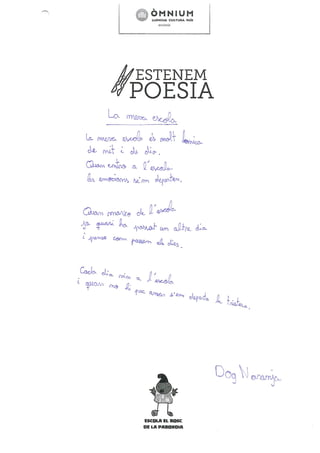 ÒMNIUM
LLENGUA CULTURA PAÍS
ESTENEM
POESIA
La meva escola
La meva escola és molt bonica
de nit i de dia.
Quan entro a l'escola
les emocions se'm desperten.
Quan marxo de l'escola
ja quasi ha passat un altre dia
i penso com passen els dies.
Cada dia vaig a l'escola
i quan no hi puc anar se'm desperta la tristesa.
Dog Naranja
ESCOLA EL BOSC
DE LA PABORDIA